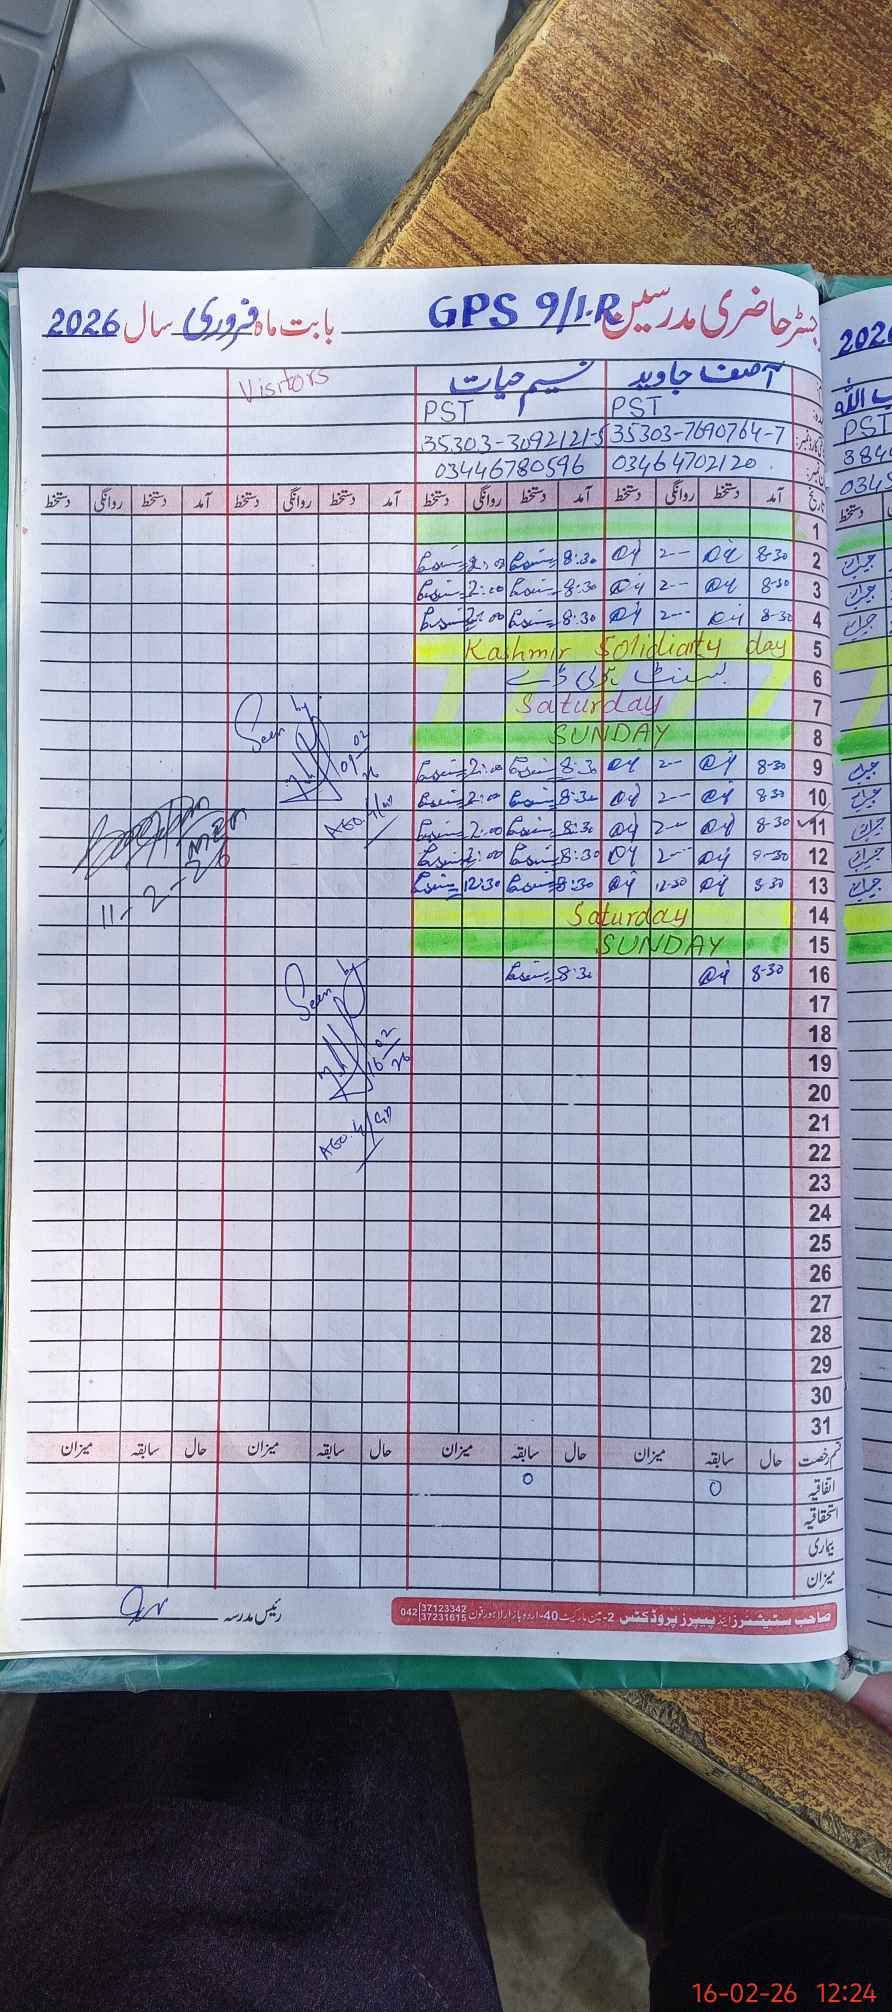 رجسٹر حاضری مدرسین GPS 9/1.R بابت ماہ فروری سال 2026
آصف جاوید نسیم حیات Visitors
PST PST
35303-7690764-7 35303-3092121-5
03464702120 03446780596
تاریخ آمد دستخط روانگی دستخط آمد دستخط روانگی دستخط آمد دستخط روانگی دستخط آمد دستخط روانگی دستخط
1
2 8-30 2-- 8:30 2:00
3 8-30 2-- 8:30 2:00
4 8-30 2-- 8:30 2:00
5 Kashmir Solidiarty day
6 بسنٹ ہولی ڈے
7 Saturday
8 SUNDAY
9 8-30 2-- 8:30 2:00
10 8 30 2-- 8:30 2:00
11 8-30 2-- 8:30 2:00
12 8-30 2-- 8:30 2:00
13 8-30 12-30 8:30 12:30
14 Saturday
15 SUNDAY
16 8-30 8:30
17
18
19
20
21
22
23
24
25
26
27
28
29
30
31
Seen by
09-02
26
AEO
11-2-26
Seen by
16-02
26
AEO
قسم رخصت حال سابقہ میزان حال سابقہ میزان حال سابقہ میزان حال سابقہ میزان
اتفاقیہ 0 0
استحقاقیہ
بیماری
میزان
رئیس مدرسہ
صاحب سٹیشنرز اینڈ پیپرز پروڈکٹس 2-مین مارکیٹ 40-اردو بازار لاہور فون 042 37123342 37231615
2026
PST
16-02-26 12:24